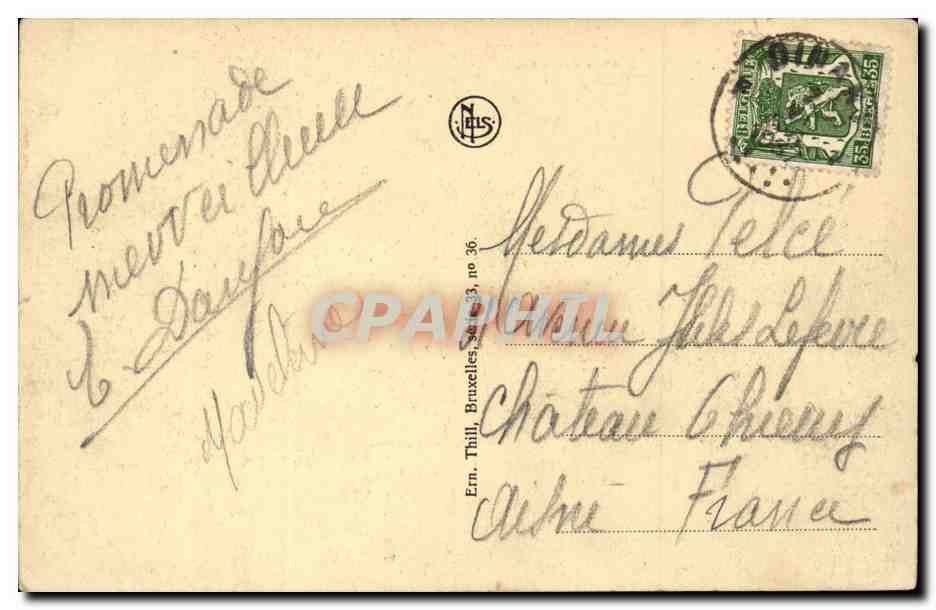 Promenade
merveilleuse
Madeleine
NELS
Ern. Thill, Bruxelles, série 33, no 36.
CPARHIL
35 BELGIE
BELGIQUE 35
DIN
Mesdames Pelcé
Jules Lefevre
Château Thierry
Aisne France